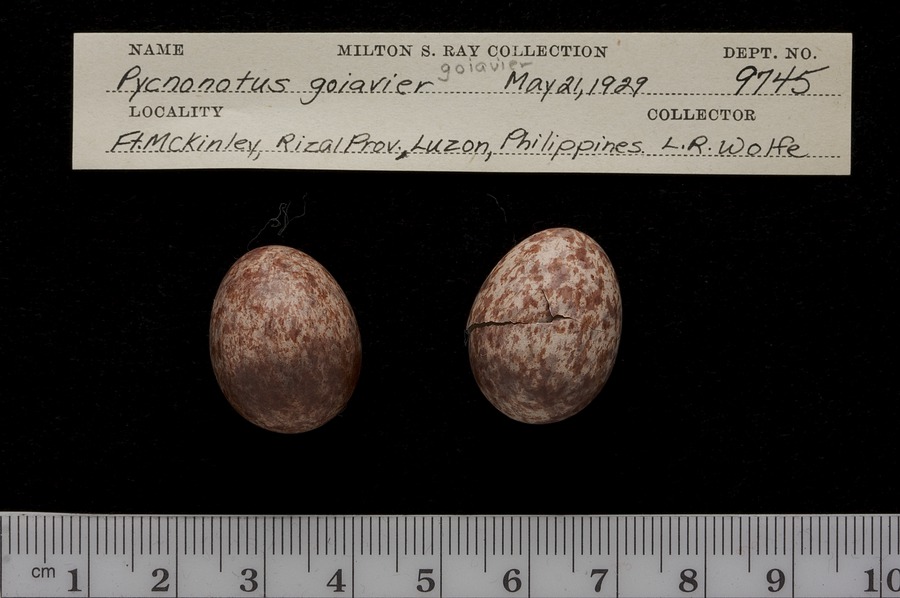 NAME MILTON S. RAY COLLECTION DEPT. NO.
goiavier
Pycnonotus goiavier May 21, 1929 9745
LOCALITY COLLECTOR
Ft. McKinley, Rizal Prov., Luzon, Philippines. L.R. Wolfe
cm 1 2 3 4 5 6 7 8 9 10